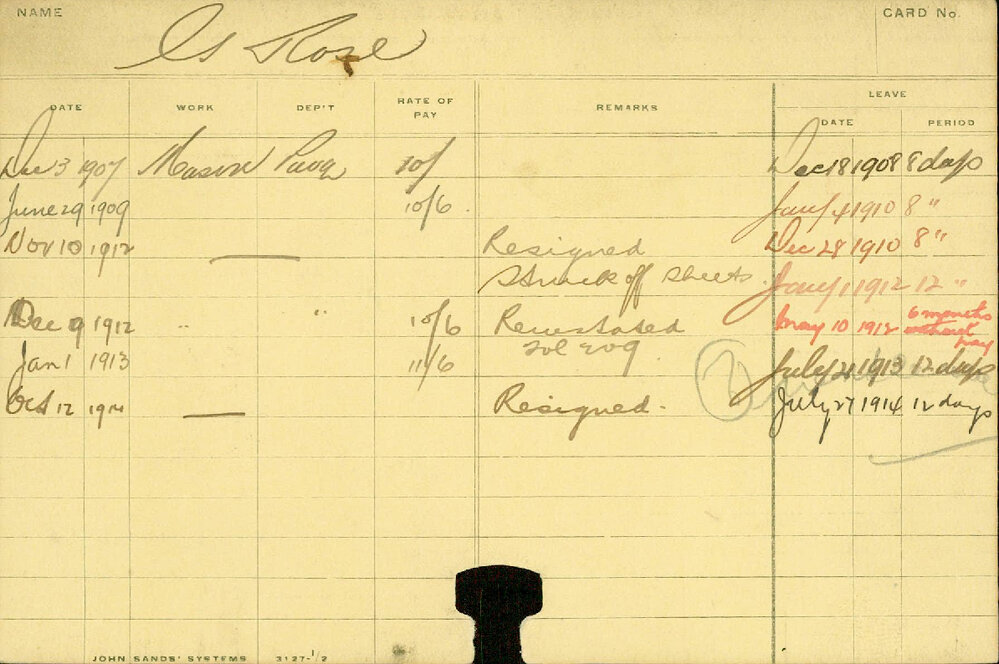 NAME
CARD No.
Rose
LEAVE
DATE WORK DEP'T RATE OF PAY REMARKS DATE PERIOD
Dec 3 1907 Mason Paving 10/ Dec 18 1908 8 days
June 29 1909 10/6 Jany 4 1910 8 "
Nov 10 1912 — Resigned Dec 28 1910 8 "
Struck off sheets. Jany 1 1912 12 "
Dec 9 1912 " " 10/6 Reinstated May 10 1912 6 months without pay
Jan 1 1913 11/6 July 21 1913 12 days
Oct 12 1914 — Resigned. July 27 1914 12 days
JOHN SANDS' SYSTEMS 3127-1/2